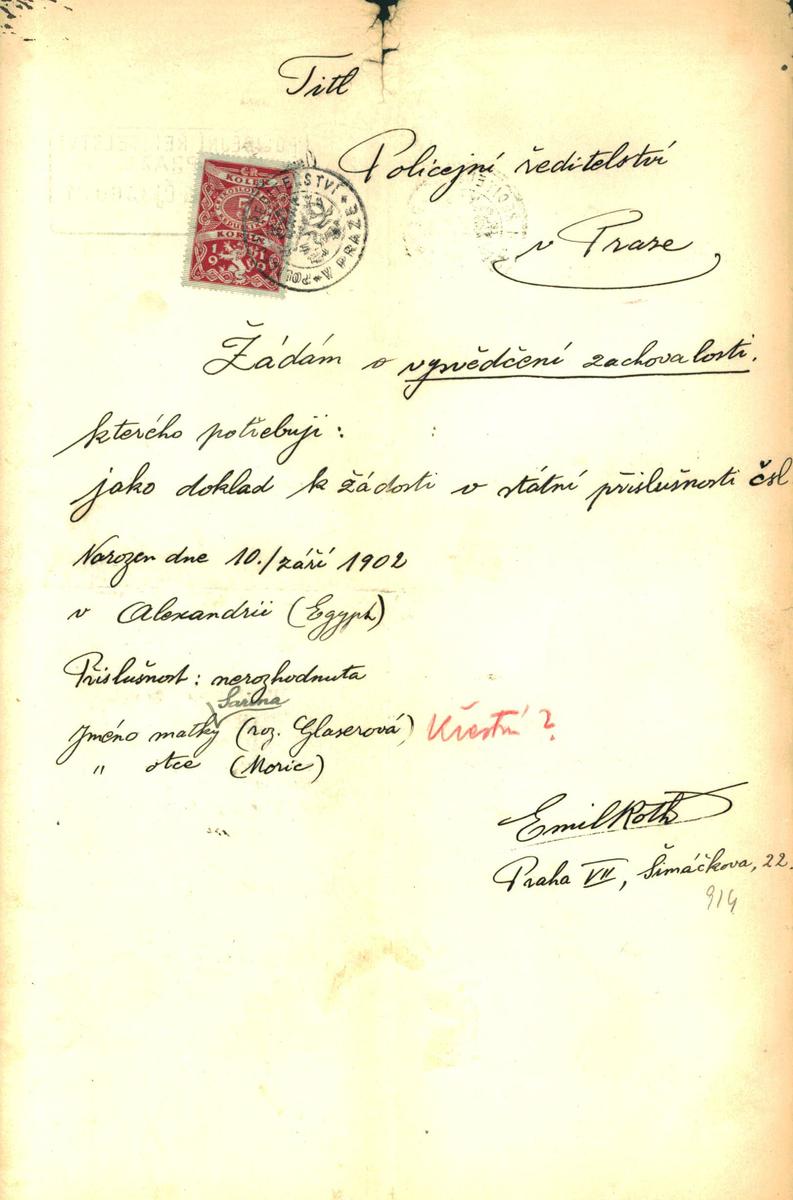 Titl
Policejní ředitelství
v Praze
KOLEK
5
KORUN
19 31
Žádám o vysvědčení zachovalosti.
kterého potřebuji:
jako doklad k žádosti o státní příslušnosti čsl
Narozen dne 10./září 1902
v Alexandrii (Egypt)
Příslušnost: nerozhodnuta
Sarina
Jméno matky (roz. Glaserová) Křestní?
" otce (Moric)
Emil Roth
Praha VII, Šimáčkova, 22.
914